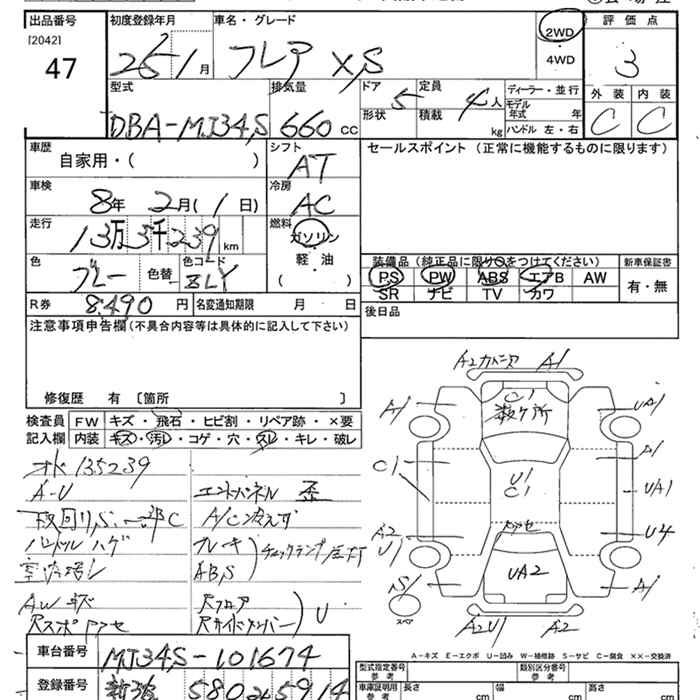 出品番号 初度登録年月 車名・グレード 2WD ・ 4WD 評価点
[2042]
47 26 1月 フレア XS 3
型式 排気量 ドア 形状 5 定員 積載 4人 kg ディーラー・並行 モデル年式 年 ハンドル 左・右 外装 内装
DBA-MJ34S 660 cc C C
車歴 自家用・( ) シフト AT セールスポイント (正常に機能するものに限ります)
車検 8年 2月(1日) 冷房 AC
走行 13万5千239km 燃料 ガソリン 軽・油 ( )
色 ブルー 色替 色コード ZLY
装備品(純正品に限り○をつけてください) 新車保証書
PS PW ABS エアB AW 有・無
SR ナビ TV カワ
R券 8,490円 名変通知期限 月 日 後日品
注意事項申告欄(不具合内容等は具体的に記入して下さい)
修復歴 有 〔箇所 〕
検査員記入欄 FW キズ・飛石・ヒビ割・リペア跡・×要
内装 キズ・汚レ・コゲ・穴・スレ・キレ・破レ
オド 135239
A-U エンドパネル 歪
下回りS 一部C A/C冷えず
ハンドルハゲ ブレーキ チェックランプ点灯
ABS
AWキズ Rフロア
U
A2 A1
A1 C1 数ヶ所 UA1
C1 A1
U1 C1 UA1
A2 U1 U4
UA2
S1 A1
スペア
A2U1 A2
A-キズ E-エクボ U-凹み W-補修跡 S-サビ C-腐食 XX-交換済
車台番号 MJ34S-101674
登録番号 新潟 580 5914
型式指定番号 参考 類別区分番号 参考
車庫証明用 参考 長さ cm 幅 cm 高さ cm